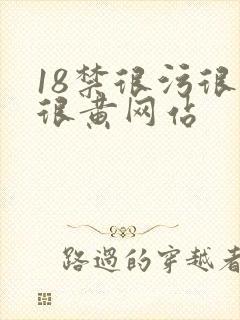 18禁很污很
很黄网站
路過的穿越者